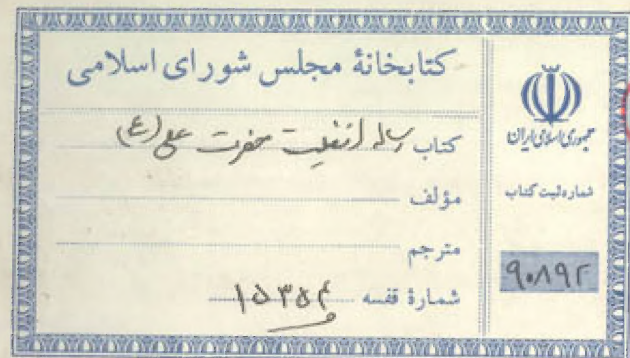 کتابخانهٔ مجلس شورای اسلامی
کتاب رساله افضلیت حضرت علی (ع)
مؤلف
مترجم
شمارهٔ قفسه ۱۵۳۵۴
جمهوری اسلامی ایران
شماره ثبت کتاب
۹۰۸۹۲